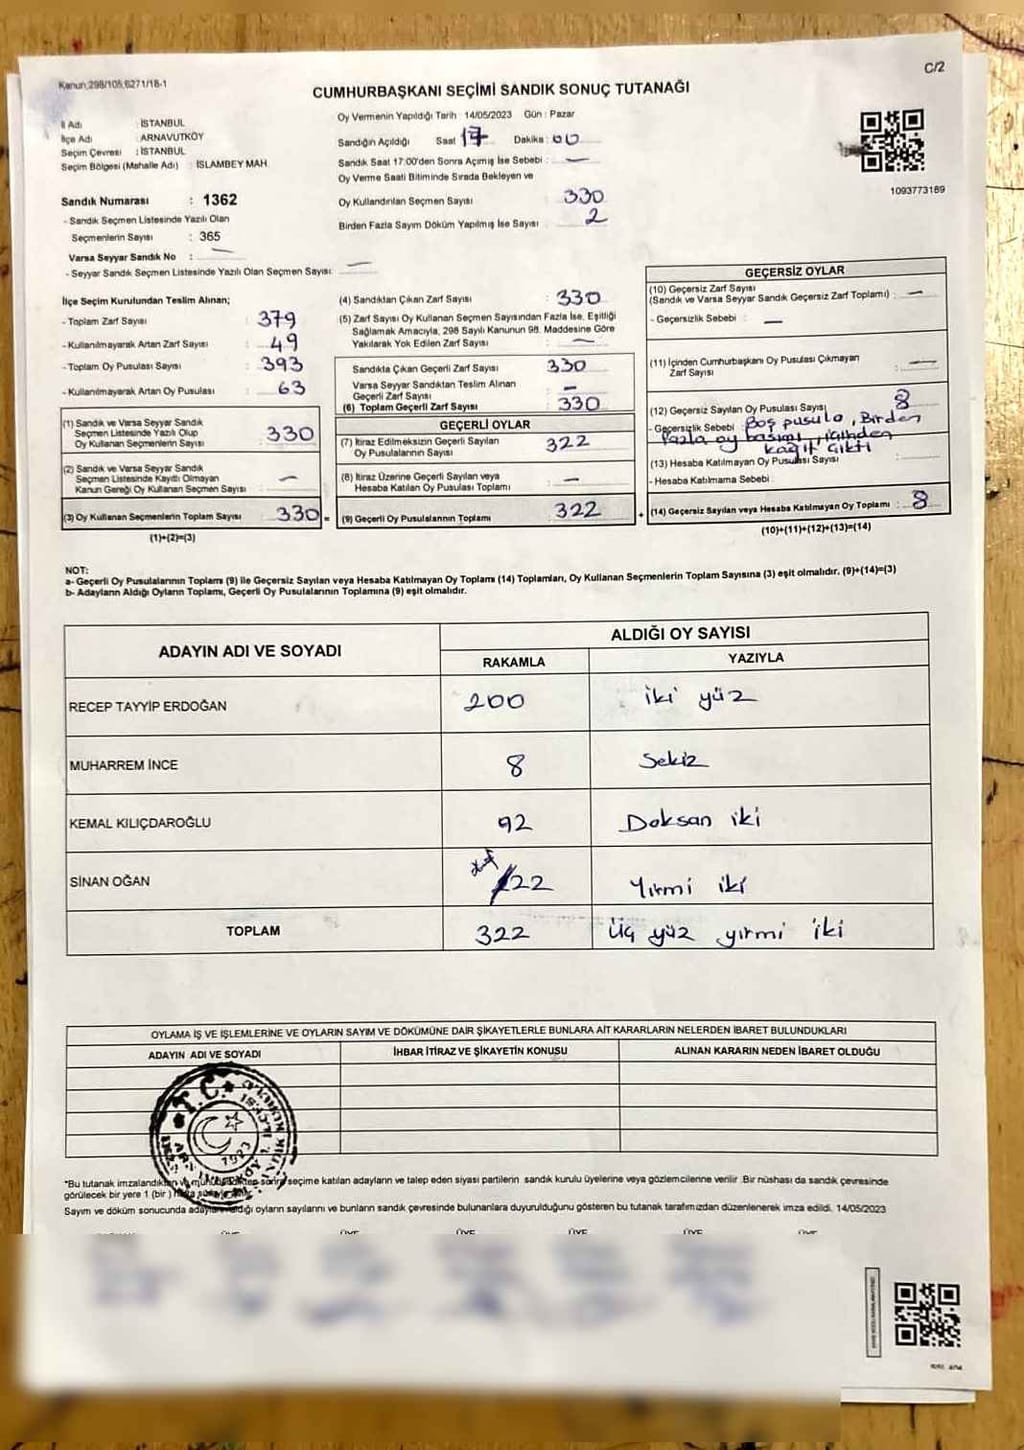 C/2
Kanun:298/105,6271/18-1
CUMHURBAŞKANI SEÇİMİ SANDIK SONUÇ TUTANAĞI
İl Adı : İSTANBUL
İlçe Adı : ARNAVUTKÖY
Seçim Çevresi : İSTANBUL
Seçim Bölgesi (Mahalle Adı) : İSLAMBEY MAH
Sandık Numarası : 1362
- Sandık Seçmen Listesinde Yazılı Olan
Seçmenlerin Sayısı : 365
Varsa Seyyar Sandık No : —
- Seyyar Sandık Seçmen Listesinde Yazılı Olan Seçmen Sayısı: —
Oy Vermenin Yapıldığı Tarih 14/05/2023 Gün : Pazar
Sandığın Açıldığı Saat 17 Dakika : 00
Sandık Saat 17:00'den Sonra Açımış İse Sebebi : —
Oy Verme Saati Bitiminde Sırada Bekleyen ve
Oy Kullandırılan Seçmen Sayısı : 330
Birden Fazla Sayım Döküm Yapılmış İse Sayısı : 2
1093773189
İlçe Seçim Kurulundan Teslim Alınan;
- Toplam Zarf Sayısı : 379
- Kullanılmayarak Artan Zarf Sayısı : 49
- Toplam Oy Pusulası Sayısı : 393
- Kullanılmayarak Artan Oy Pusulası : 63
(1) Sandık ve Varsa Seyyar Sandık
Seçmen Listesinde Yazılı Olup
Oy Kullanan Seçmenlerin Sayısı : 330
(2) Sandık ve Varsa Seyyar Sandık
Seçmen Listesinde Kayıtlı Olmayan
Kanun Gereği Oy Kullanan Seçmen Sayısı : —
(3) Oy Kullanan Seçmenlerin Toplam Sayısı : 330 =
(1)+(2)=(3)
(4) Sandıktan Çıkan Zarf Sayısı : 330
(5) Zarf Sayısı Oy Kullanan Seçmen Sayısından Fazla İse, Eşitliği
Sağlamak Amacıyla, 298 Sayılı Kanunun 98. Maddesine Göre
Yakılarak Yok Edilen Zarf Sayısı : —
Sandıkta Çıkan Geçerli Zarf Sayısı : 330
Varsa Seyyar Sandıktan Teslim Alınan
Geçerli Zarf Sayısı : —
(6) Toplam Geçerli Zarf Sayısı : 330
GEÇERLİ OYLAR
(7) İtiraz Edilmeksizin Geçerli Sayılan
Oy Pusulalarının Sayısı : 322
(8) İtiraz Üzerine Geçerli Sayılan veya
Hesaba Katılan Oy Pusulası Toplamı : —
(9) Geçerli Oy Pusulalarının Toplamı : 322 +
GEÇERSİZ OYLAR
(10) Geçersiz Zarf Sayısı
(Sandık ve Varsa Seyyar Sandık Geçersiz Zarf Toplamı) : —
- Geçersizlik Sebebi : —
(11) İçinden Cumhurbaşkanı Oy Pusulası Çıkmayan
Zarf Sayısı : —
(12) Geçersiz Sayılan Oy Pusulası Sayısı : 8
- Geçersizlik Sebebi : Boş pusula, Birden
fazla oy basımı, içinden
kağıt çıktı
(13) Hesaba Katılmayan Oy Pusulası Sayısı :
- Hesaba Katılmama Sebebi :
(14) Geçersiz Sayılan veya Hesaba Katılmayan Oy Toplamı : 8
(10)+(11)+(12)+(13)=(14)
NOT:
a- Geçerli Oy Pusulalarının Toplamı (9) ile Geçersiz Sayılan veya Hesaba Katılmayan Oy Toplamı (14) Toplamları, Oy Kullanan Seçmenlerin Toplam Sayısına (3) eşit olmalıdır. (9)+(14)=(3)
b- Adayların Aldığı Oyların Toplamı, Geçerli Oy Pusulalarının Toplamına (9) eşit olmalıdır.
ADAYIN ADI VE SOYADI
ALDIĞI OY SAYISI
RAKAMLA YAZIYLA
RECEP TAYYİP ERDOĞAN 200 iki yüz
MUHARREM İNCE 8 Sekiz
KEMAL KILIÇDAROĞLU 92 Doksan iki
SİNAN OĞAN 22 Yirmi iki
TOPLAM 322 Üç yüz yirmi iki
OYLAMA İŞ VE İŞLEMLERİNE VE OYLARIN SAYIM VE DÖKÜMÜNE DAİR ŞİKAYETLERLE BUNLARA AİT KARARLARIN NELERDEN İBARET BULUNDUKLARI
ADAYIN ADI VE SOYADI İHBAR İTİRAZ VE ŞİKAYETİN KONUSU ALINAN KARARIN NEDEN İBARET OLDUĞU
T.C.
1923
*Bu tutanak imzalandıktan sonra seçime katılan adayların ve talep eden siyasi partilerin sandık kurulu üyelerine veya gözlemcilerine verilir. Bir nüshası da sandık çevresinde
görülecek bir yere 1 (bir)
Sayım ve döküm sonucunda oyların sayılarını ve bunların sandık çevresinde bulunanlara duyurulduğunu gösteren bu tutanak tarafımızdan düzenlenerek imza edildi. 14/05/2023
ÜYE ÜYE ÜYE ÜYE ÜYE ÜYE